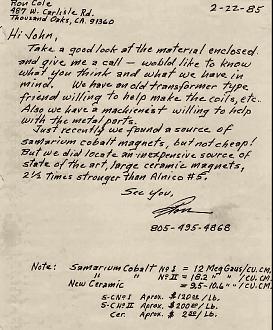 Ron Cole
487 W. Carlisle Rd.
Thousand Oaks, CA. 91360
2-22-85
Hi John,
Take a good look at the material enclosed
and give me a call — would like to know
what you think and what we have in
mind. We have an old transformer type
friend willing to help make the coils, etc..
Also we have a machinest willing to help
with the metal parts.
Just recently we found a source of
samarium cobalt magnets, but not cheap!
But we did locate an inexpensive source of
state of the art, large ceramic magnets,
2½ times stronger than Alnico #5.
See You,
Ron
805-495-4868
Note: Samarium Cobalt Nº I = 12 MegGaus/CU.CM.
" " Nº II = 18.2 " " /CU.CM.
New Ceramic = 9.5-10.6 " " /CU.CM.
S-C Nº I Aprox. $120.00/Lb.
S-C Nº II Aprox. $200.00/Lb.
Cer. Aprox. $ 2.00/Lb.